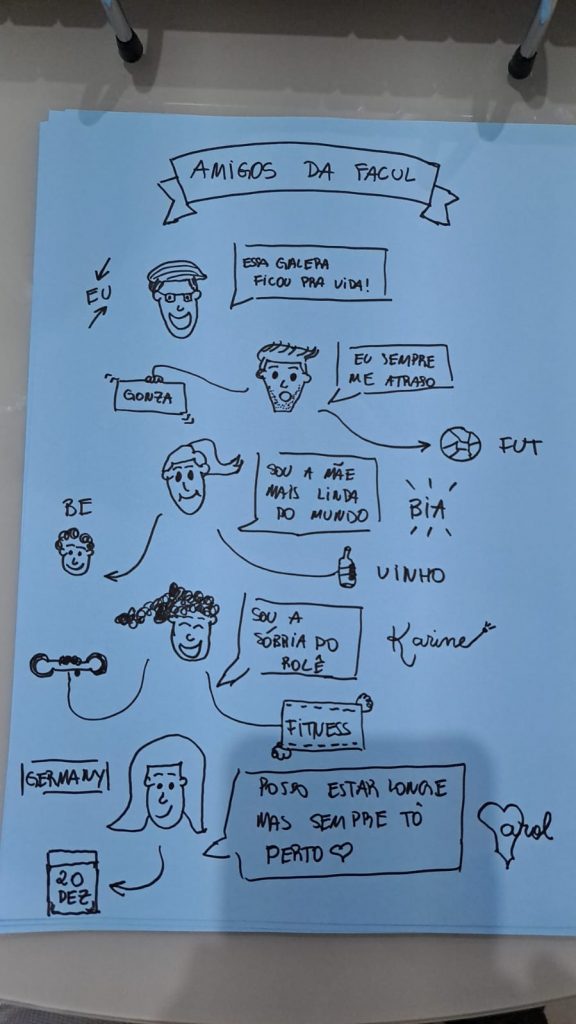 AMIGOS DA FACUL
EU
ESSA GALERA
FICOU PRA VIDA!
GONZA
EU SEMPRE
ME ATRASO
FUT
BE
SOU A MÃE
MAIS LINDA
DO MUNDO
BIA
VINHO
SOU A
SÓBRIA DO
ROLÊ
Karine
FITNESS
GERMANY
POSSO ESTAR LONGE
MAS SEMPRE TÔ
PERTO ♡
Carol
20
DEZ